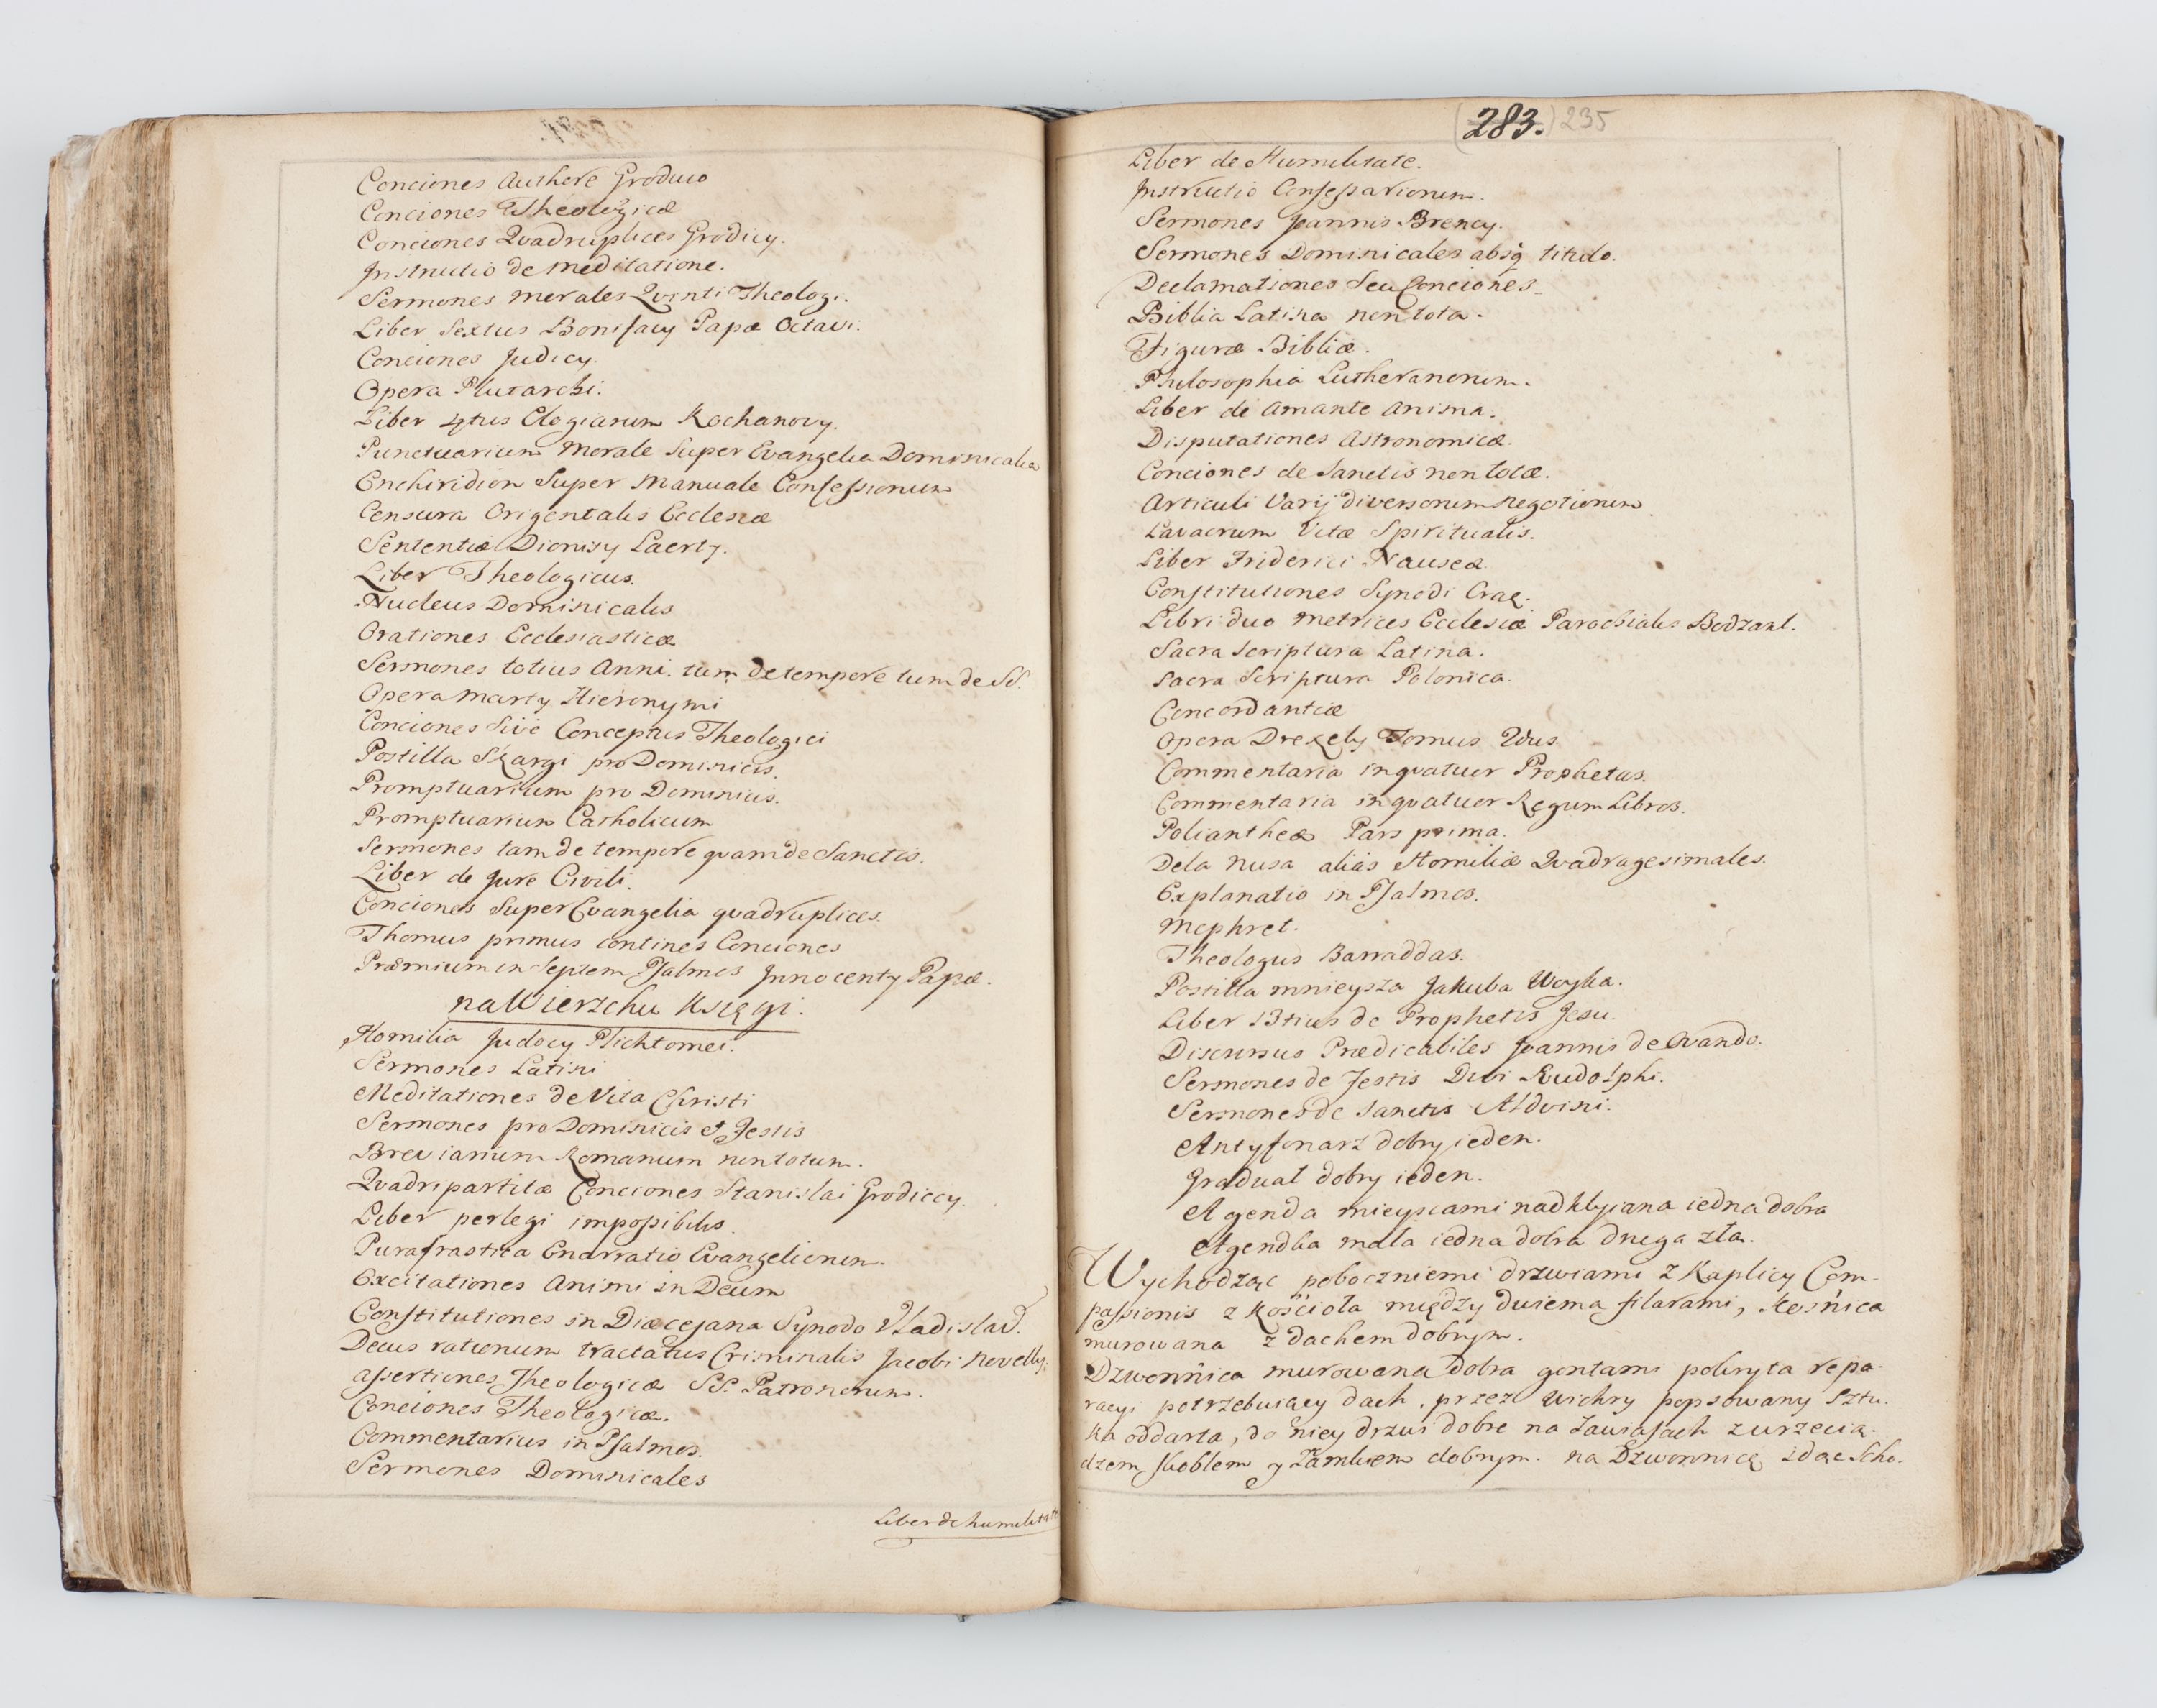 Conciones Authore Grodicio
Conciones Theologicæ
Conciones Quadruplices Grodicy.
Instructio de meditatione.
Sermones morales Qvinti Theologi.
Liber Sextus Bonifacy Papæ Octavi.
Conciones Judicy.
Opera Plutarchi.
Liber 4tus Elogiarum Kochanovy.
Punctuarium Morale Super Evangelia Dominicalia
Enchiridion Super Manuale Confessionum
Censura Origentalis Ecclesiæ
Sententiæ Dionisy Laerty.
Liber Theologicus.
Nucleus Dominicalis
Orationes Ecclesiasticæ
Sermones totius Anni. tum de tempore tum de SS.
Opera Marty Hieronymi
Conciones Sive Conceptus Theologici
Postilla Skargi pro Dominicis.
Promptuarium pro Dominicis.
Promptuarium Catholicum
Sermones tam de tempore quam de Sanctis.
Liber de Jure Civili.
Conciones Super Evangelia quadruplices.
Thomus primus continens Conciones
Præmium in Septem Psalmos Innocenty Papæ.
na Wierzchu Księgi.
Homilia Judocy Plichtomei.
Sermones Latini
Meditationes de Vita Christi
Sermones pro Dominicis et Festis
Breviarium Romanum non totum.
Quadripartitæ Conciones Stanislai Grodiccy.
Liber perlegi impossibilis.
Purafrastica Enarratio Evangeliorum.
Excitationes Animi in Deum
Constitutiones in Diæcesana Synodo Vladislav.
Decus rationum tractatus Criminalis Jacobi Novelly.
assertiones Theologicæ SS. Patronorum.
Conciones Theologicæ.
Commentarius in Psalmos.
Sermones Dominicales
Liber de humilitate
283. 235
Liber de Humilitate.
Instructio Confessariorum.
Sermones Joannis Brency.
Sermones Dominicales absq titulo.
Declamationes Seu Conciones
Biblia Latina non tota.
Figuræ Bibliæ.
Philosophia Lutheranorum.
Liber de Amante Anima.
Disputationes Astronomicæ.
Conciones de Sanctis non totæ.
Articuli Varij diversorum negotiorum
Lavacrum Vitæ Spiritualis.
Liber Friderici Nauseæ
Constitutiones Synodi Crac.
Libri duo Metrices Ecclesiæ Parochialis Bodzant.
Sacra Scriptura Latina.
Sacra Scriptura Polonica.
Concordantiæ
Opera Drexely Tomus 2dus
Commentaria in quatuor Prophetas.
Commentaria in quatuor Regum Libros.
Poliantheæ Pars prima.
Dela Nusa aliàs Homiliæ Quadragesimales.
Explanatio in Psalmos.
Mephret.
Theologus Barraddas.
Postilla mnieysza Jakuba Woyka.
Liber 13tius de Prophetis Jesu.
Discursus Prædicabiles Joannis de Ovando.
Sermones de Festis Divi Rudolphi.
Sermones de Sanctis Aldvini.
Antyfonarz dobry ieden.
Graduał dobry ieden.
Agenda mieyscami nadkłyiana iedna dobra
Agendka mała iedna dobra druga zła.
Wychodząc poboczniemi drzwiami z Kaplicy Com-
passionis z Kościoła między dwiema filarami, Kośnica
murowana z dachem dobrym.
Dzwonnica murowana dobra gontami pokryta repa-
racyi potrzebuiący dach, przez wichry popsowany Sztu-
ka oddarta, do niey drzwi dobre na Zawiasach z wrzecią-
dzem skoblem y Zamkiem dobrym. na Dzwonnicę idąc Scho-